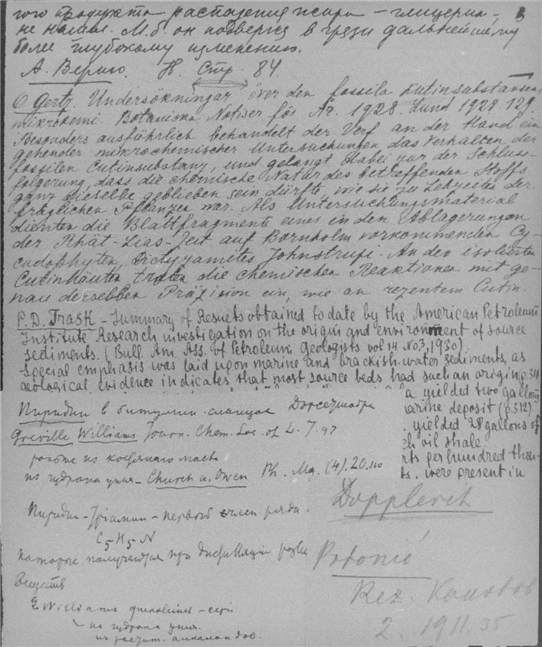 того продукта распадения жира - глицерина,
не нашел. М.б. он подвергся в грязи дальнейшему
более глубокому изменению.
А. Верно. Стр. 84.
O Gertz. Undersökningar över den fossila Cutinsubstansen
mikrokemi Botaniska Notiser för Ar. 1928. Lund 1928 129.
Besonders ausführlich behandelt der Verf an der Hand ein
gehender mikrochemischer Untersuchungen das Verhalten der
fossilen Cutinsubstanz, und gelangt dabei zur der Schluss-
folgerung, dass die chemische Natur des betreffenden Stoffs
ganz dieselbe geblieben sein dürfte, wie sie zu Lebzeiten der
fraglichen Pflanzen war. Als Untersuchungsmaterial
dienten die Blattfragmente eines in den Ablagerungen
der Rhät-Lias-Zeit auf Bornholm vorkommenden Cy-
cadophyten, Dictyozamites Johnstrupi. An den isolierten
Cutinhäuten traten die chemischen Reaktionen mit ge-
nau derselben Präzision ein, wie an rezentem Cutin.
P.D. Trask - Summary of Results obtained to date by the American Petroleum
Institute Research investigation on the origin and environment of source
sediments. (Bull. Am. Ass. of Petroleum Geologists vol 14 No 3, 1930).
Special emphasis was laid upon marine and brackish-water sediments, as
geological evidence indicates that most source beds had such an origin (p. 511
a yielded two gallons
marine deposit (p. 512)
yielded 28 gallons of
oil shale
rts per hundred thou-
ts. were present in
Пиридин в битумин сланцах Дорсетшира
Greville Williams Journ. Chem. Soc. of L. 7. 97
из гудрона угля - Church a. Owen Ph. Mg. (4). 20. 110
Пиридин - первый член ряда.
C5H5N
которые получаются при
веществ
Williams quinolines -
из гудрона угля.
из алкалоидов.
Dopplerit
Potonié
Rez. Kaustob
2. 1911. 35